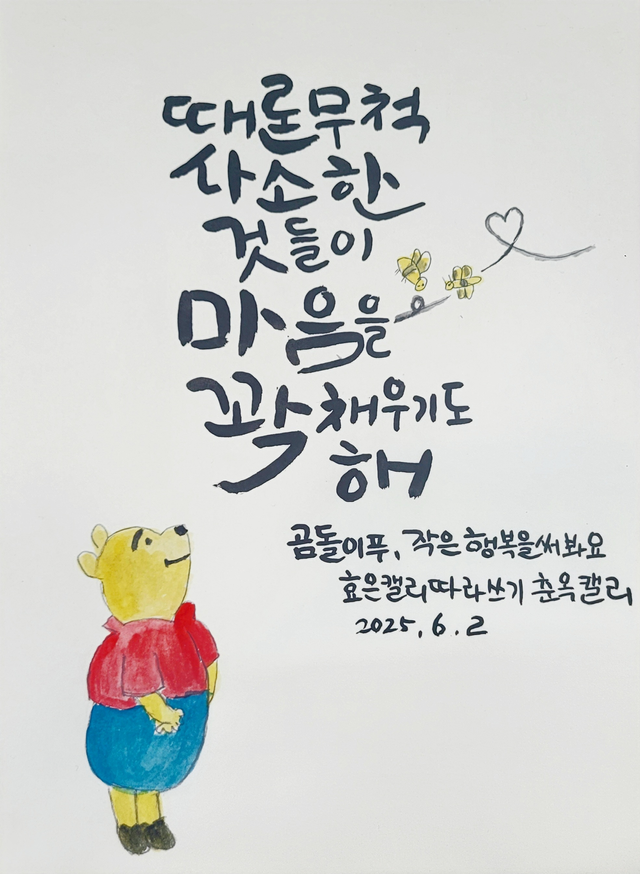 때론무척
사소한
것들이
마음을
꽉채우기도
해
곰돌이푸, 작은 행복을써봐요
효은캘리따라쓰기 춘옥캘리
2025. 6. 2